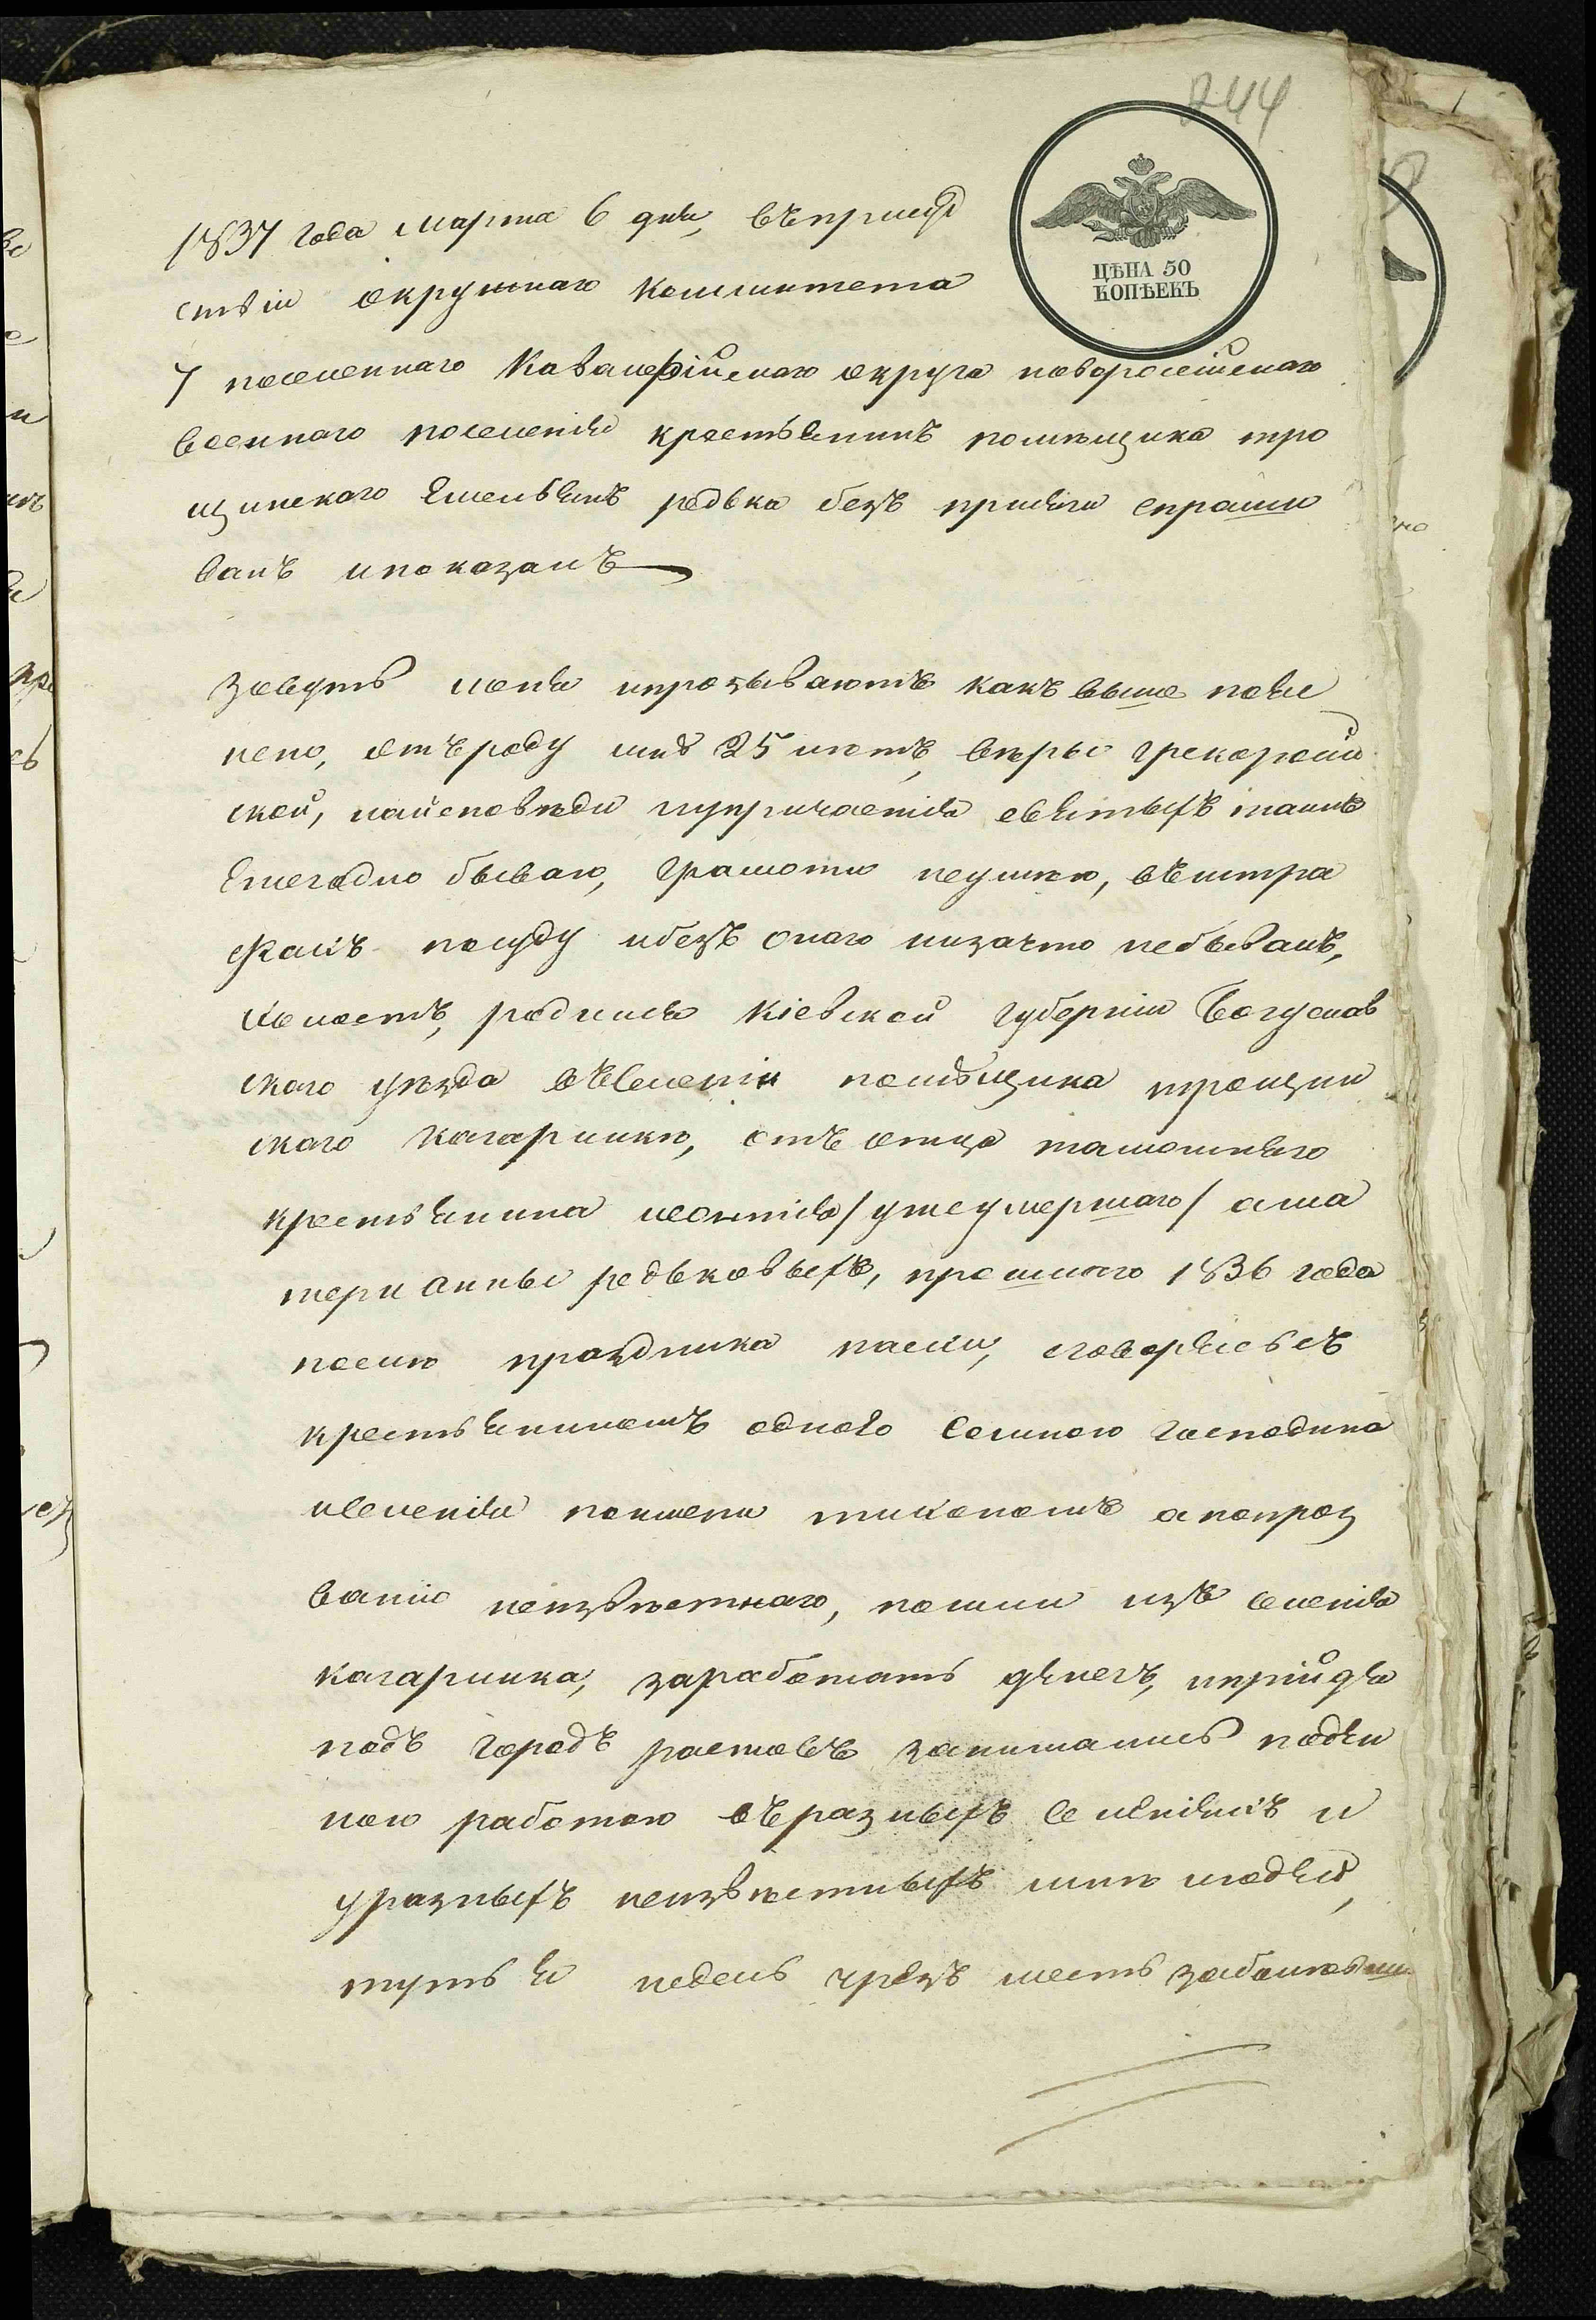 244
ЦѢНА 50
КОПѢЕКЪ
1837 года Марта 6 дня, въ присуд
ствіи окружнаго Коммитета
7 поселеннаго Кавалерійскаго округа новоросійскаго
военнаго поселенія крестьянинъ помѣщика тро
щинскаго Емельянъ редька безъ присяги спраши
ванъ и показалъ
зовутъ меня и прозываютъ какъ выше пояс
нено, отъ роду мнѣ 25 лѣтъ, вѣры грекоросій
ской, на исповѣди и у причастія святыхъ таинъ
Ежегодно бываю, грамоти неумѣю, въ штра
фахъ по суду и безъ онаго низачто небывалъ,
холостъ, родился Кіевской губерніи Богуслав
скаго уѣзда въ Селеніи помѣщика трощин
скаго Кагарлики, отъ отца тамошняго
крестьянина леонтія / уже умершаго / а ма
тери анны редьковыхъ, прошлого 1836 года
послѣ праздника пасхи, сговорясь съ
крестьяниномъ одного со мною господина
и селенія по имени тихономъ а по проз
ванію неизвѣстнаго, пошли изъ селенія
кагарлика, заработать дѣнегъ, и прійдя
подъ городъ растовъ занимались подѣн
ною работою въ разныхъ селеніяхъ и
у разныхъ неизвѣстныхъ мнѣ людей,
тутъ я недель чрезъ шесть заболѣвши